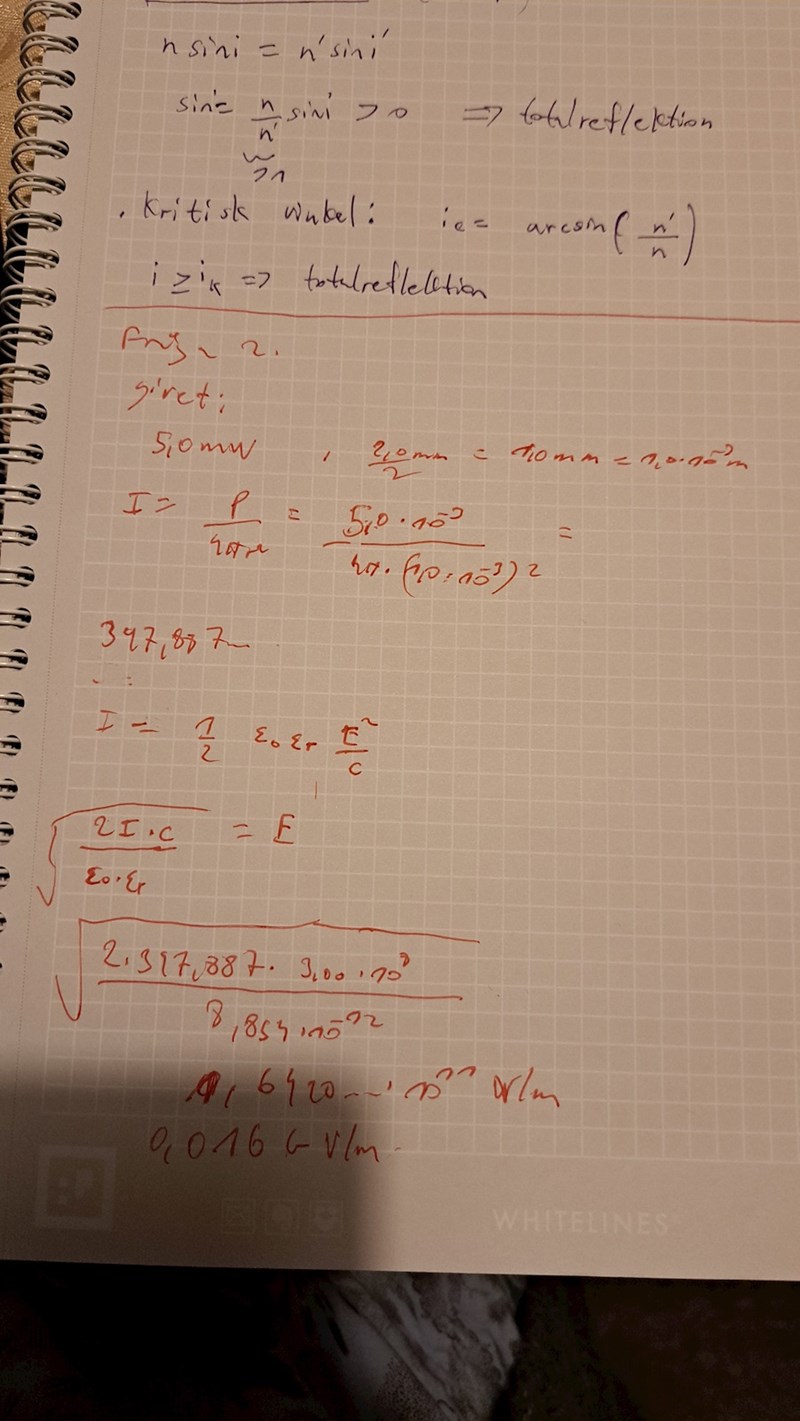 n sin i = n' sin i'
sin i' = n/n' sin i > 0 ⇒ totalreflektion
>1
. Kritisk vinkel: ic = arcsin(n'/n)
i ≥ ik ⇒ totalreflektion
2.
givet:
5,0 mW , 2,0 mm/2 = 1,0 mm = 1,0·10⁻³ m
I = P/4πr = 5,0·10⁻³/4π·(1,0·10⁻³)² =
397,887...
I = 1/2 ε₀ εr E²/c
√(2I·c/ε₀·εr) = E
√(2·397,887·3,00·10⁸/8,854·10⁻¹²)
1,6420...·10¹¹ V/m
0,016 G V/m
WHITELINES